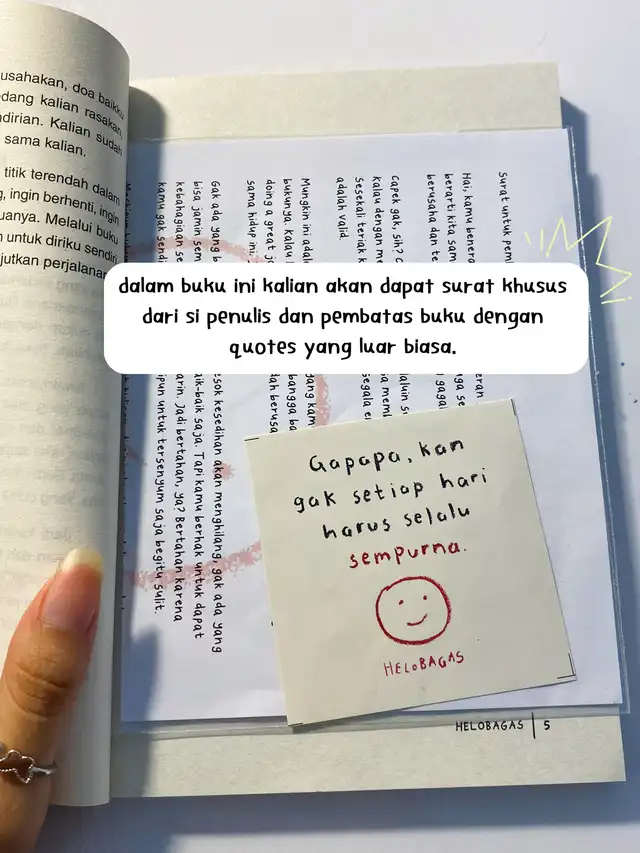 usahakan, doa baikku
dang kalian rasakan,
dirian. Kalian sudah
sama kalian.
titik terendah dalam
ingin berhenti, ingin
uanya. Melalui buku
untuk diriku sendiri
jutkan perjalanan
Surat untuk pem
Hai, kamu benera
berarti kita sam
berusaha dan te
Capek gak, sih? C
kalau dengan me
Sesekali teriak k
adalah valid.
Mungkin ini adal
bukunya. Kalau
doing a great jo
sama hidup ini:
Gak ada yang b
esok kesedihan akan menghilang, gak ada yang
bisa jamin sem
aik-baik saja. Tapi kamu berhak untuk dapat
kebahagiaan se
arin. Jadi bertahan, ya? Bertahan karena
kamu gak sendi
ipun untuk tersenyum saja begitu sulit.
dalam buku ini kalian akan dapat surat khusus
dari si penulis dan pembatas buku dengan
quotes yang luar biasa.
Gapapa, kan
gak setiap hari
harus selalu
sempurna.
HELOBAGAS
HELOBAGAS | 5